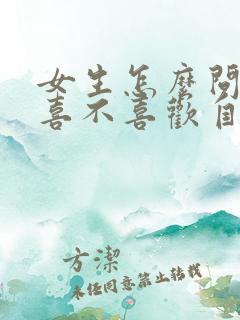 女生怎麼問
喜不喜歡自
方潔
未任同意禁止转载